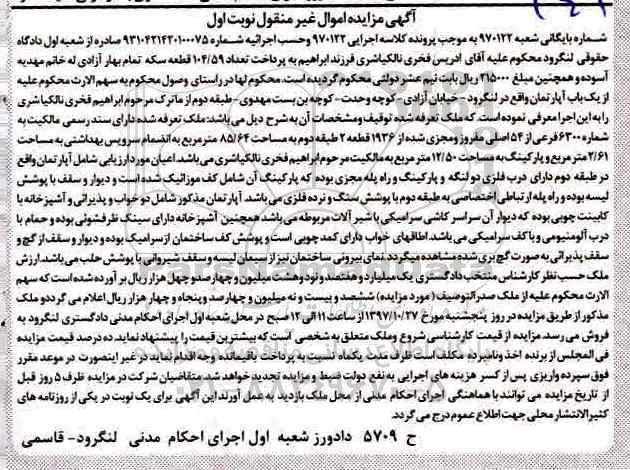 آگهی مزایده اموال غیر منقول نوبت اول
شماره بایگانی شعبه ۹۷۰۱۲۲ به موجب پرونده کلاسه اجرایی ۹۷۰۱۲۲ وحسب اجرائیه شماره ۹۳۱۰۴۲۱۴۲۰۱۰۰۰۷۵ صادره از شعبه اول دادگاه
حقوقی لنگرود محکوم علیه آقای ادریس فخری نالکیاشری فرزند ابراهیم به پرداخت تعداد ۱۰۴/۵۹ قطعه سکه تمام بهار آزادی له خانم مهدیه
آسوده و همچنین مبلغ ۲۱۵۰۰۰ ریال بابت نیم عشر دولتی محکوم گردیده است. محکوم لها در راستای وصول محکوم به سهم الارث محکوم علیه
از یک باب آپارتمان واقع در لنگرود - خیابان آزادی - کوچه وحدت - کوچه بن بست مهدوی - طبقه دوم از ماترک مرحوم ابراهیم فخری نالکیاشری
را به این اجرا معرفی نموده است. که ملک تعرفه شده توقیف ومشخصات آن به شرح ذیل می باشد: ملک تعرفه شده دارای سند رسمی مالکیت به
شماره ۶۳۰۰ فرعی از ۵۴ اصلی مفروز ومجزی شده از ۱۹۳۶ قطعه ۲ طبقه دوم به مساحت ۸۵/۶۴ مترمربع به انضمام سرویس بهداشتی به مساحت
۲/۶۱ متر مربع و پارکینگ به مساحت ۱۲/۵۰ متر مربع به مالکیت مرحوم ابراهیم فخری نالکیاشری می باشد. اعیان مورد ارزیابی شامل آپارتمان واقع
در طبقه دوم دارای درب فلزی دو لنگه و پارکینگ و راه پله مجزی بوده که پارکینگ آن شامل کف موزائیک شده است و دیوار و سقف با پوشش
لیسه بوده و راه پله ارتباطی اختصاصی به طبقه دوم با پوشش سنگ و نرده فلزی می باشد. آپارتمان مذکور شامل دو خواب و پذیرائی و آشپزخانه با
کابینت چوبی بوده که دیوار آن سراسر کاشی سرامیکی با شیر آلات مربوطه می باشد همچنین آشپزخانه دارای سینک ظرفشوئی بوده و حمام با
درب آلومنیومی و با کف سرامیکی می باشد. اطاقهای خواب دارای کمد چوبی است و پوشش کف ساختمان از سرامیک بوده و دیوار و سقف از گچ و
سقف پذیرائی به صورت گچ بری شده مشاهده میگردد. نمای بیرونی ساختمان نیز از سیمان لیسه و سقف شیروانی با پوشش حلب می باشد. ارزش
ملک حسب نظر کارشناس منتخب دادگستری یک میلیارد و هفتصد و نود و هشت میلیون و چهار صد و چهل هزار ریال بر آورده شده است که سهم
الارث محکوم علیه از ملک صدرالتوصیف (مورد مزایده) ششصد و بیست و نه میلیون و چهارصد و پنجاه و چهار هزار ریال اعلام می گردد و ملک
مذکور از طریق مزایده در روز پنجشنبه مورخ ۱۳۹۷/۱۰/۲۷ از ساعت ۱۱ الی ۱۲ صبح در محل شعبه اول اجرای احکام مدنی دادگستری لنگرود به
فروش می رسد. مزایده از قیمت کارشناسی شروع وملک متعلق به شخصی است که بیشترین قیمت را پیشنهاد نماید. ده درصد قیمت مزایده
فی المجلس از برنده اخذ ونامبرده مکلف است ظرف مدت یکماه نسبت به پرداخت باقیمانده وجه اقدام نماید در غیر اینصورت در موعد مقرر
فوق سپرده واریزی پس از کسر هزینه های اجرایی به نفع دولت ضبط و مزایده تجدید خواهد شد. متقاضیان شرکت در مزایده ظرف ۵ روز قبل
از تاریخ مزایده می توانند با هماهنگی اجرای احکام مدنی از محل ملک بازدید به عمل آورند این آگهی برای یک نوبت در یکی از روزنامه های
کثیرالانتشار محلی جهت اطلاع عموم درج می گردد.
ح ۵۷۰۹ دادورز شعبه اول اجرای احکام مدنی لنگرود - قاسمی